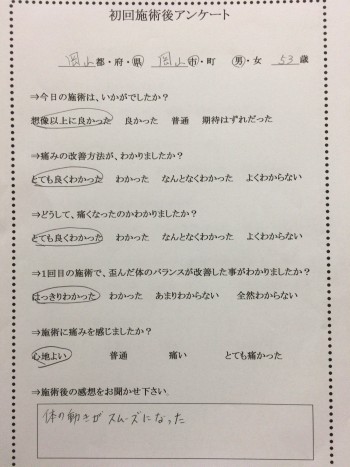 初回施術後アンケート
岡山都・府・県 岡山市・町 男・女 53歳
⇒今日の施術は、いかがでしたか？
想像以上に良かった 良かった 普通 期待はずれだった
⇒痛みの改善方法が、わかりましたか？
とても良くわかった わかった なんとなくわかった よくわからない
⇒どうして、痛くなったのかわかりましたか？
とても良くわかった わかった なんとなくわかった よくわからない
⇒1回目の施術で、歪んだ体のバランスが改善した事がわかりましたか？
はっきりわかった わかった あまりわからない 全然わからない
⇒施術に痛みを感じましたか？
心地よい 普通 痛い とても痛かった
⇒施術後の感想をお聞かせ下さい。
体の動きがスムーズになった